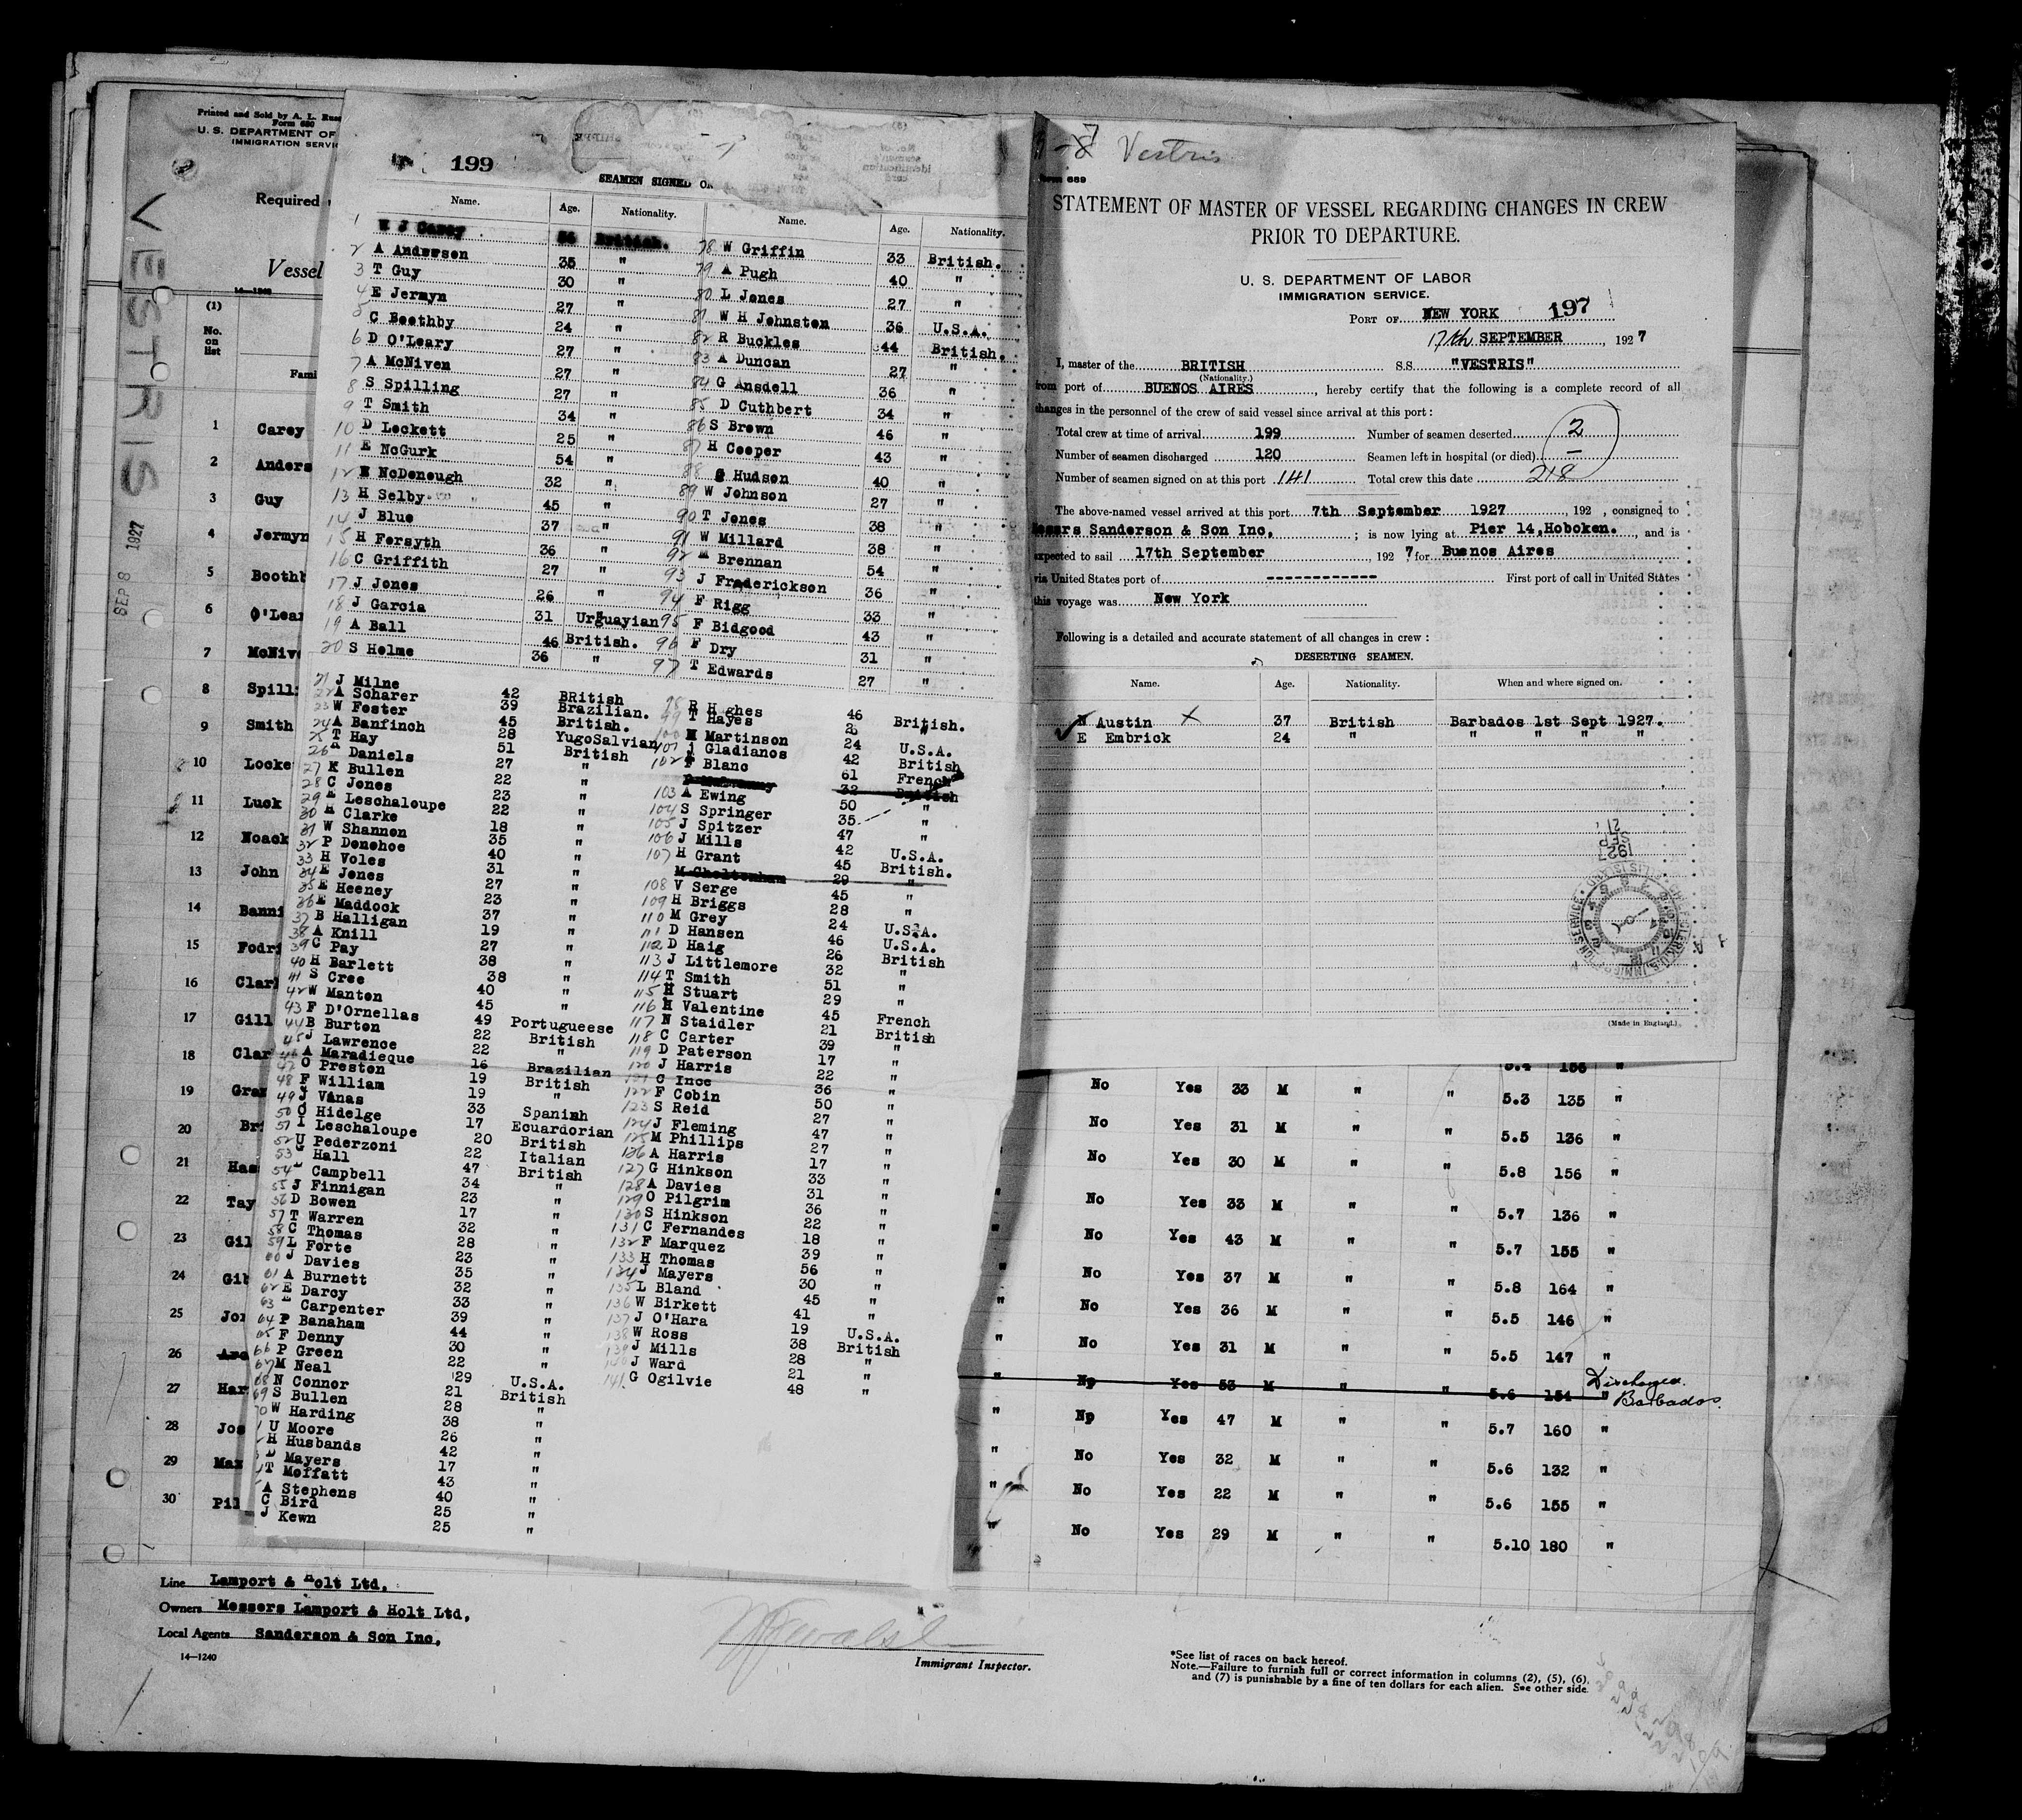 Printed and Sold by A. L.
Form 680
U. S. DEPARTMENT OF
IMMIGRATION
Required
Vessel
VESTRIS
SEP 8 1927
(1)
No.
on
list
1 Carey
2 Anders
3 Guy
4 Jermyn
5 Booth
6 O'Lear
7 McNiv
8 Spill
9 Smith
10 Locke
11 Luck
12 Noack
13 John
14 Banni
15 Fodri
16 Clar
17 Gill
18 Clar
19 Gra
20 Bri
21 Has
22 Tay
23 Gil
24 Gib
25 Jon
26
27 Har
28 Jos
29 Max
30 Pil
199
SEAMEN SIGNED ON
Name. Age. Nationality. Name. Age. Nationality.
1 W J Carey 56 British.
2 A Anderson 35 "
3 T Guy 30 "
4 E Jermyn 27 "
5 C Boothby 24 "
6 D O'Leary 27 "
7 A McNiven 27 "
8 S Spilling 27 "
9 T Smith 34 "
10 D Lockett 25 "
11 E McGurk 54 "
12 McDonough 32 "
13 H Selby 45 "
14 J Blue 37 "
15 H Forsyth 36 "
16 C Griffith 27 "
17 J Jones 26 "
18 J Garcia 31 Urguayian
19 A Ball 46 British.
20 S Holme 36 "
21 J Milne 42 BRitish
22 A Scharer 39 Brazilian.
23 W Foster 45 British.
24 A Banfinch 28 YugoSalvian
25 T Hay 51 British
26 Daniels 27 "
27 K Bullen 22 "
28 C Jones 23 "
29 Leschaloupe 22 "
30 H Clarke 18 "
31 W Shannon 35 "
32 P Donohoe 40 "
33 H Voles 31 "
34 E Jones 27 "
35 E Heeney 23 "
36 E Maddock 37 "
37 B Halligan 19 "
38 A Knill 27 "
39 C Pay 38 "
40 H Barlett 38 "
41 S Cree 40 "
42 W Manton 45 "
43 F D'Ornellas 49 Portugueese
44 B Burton 22 British
45 J Lawrence 22 "
46 A Maradieque 16 Brazilian
47 O Preston 19 British
48 F William 19 "
49 J Vanas 33 Spanish
50 O Hidelge 17 Ecuardorian
51 I Leschaloupe 20 British
52 U Pederzoni 22 Italian
53 Hall 47 British
54 Campbell 34 "
55 J Finnigan 23 "
56 D Bowen 17 "
57 T Warren 32 "
58 C Thomas 28 "
59 L Forte 23 "
60 J Davies 35 "
61 A Burnett 32 "
62 E Darcy 33 "
63 Carpenter 39 "
64 P Banaham 44 "
65 F Denny 30 "
66 P Green 22 "
67 M Neal 29 U.S.A.
68 N Connor 21 British
69 S Bullen 28 "
70 W Harding 38 "
U Moore 26 "
H Husbands 42 "
D Mayers 17 "
T Moffatt 43 "
A Stephens 40 "
C Bird 25 "
J Kewn 25 "
78 W Griffin 33 British.
79 A Pugh 40 "
80 L Jones 27 "
81 W H Johnston 36 U.S.A.
82 R Buckles 44 British.
83 A Duncan 27 "
84 G Ansdell 36 "
85 D Cuthbert 34 "
86 S Brown 46 "
87 H Cooper 43 "
88 G Hudson 40 "
89 W Johnson 27 "
90 T Jones 38 "
91 W Millard 38 "
92 M Brennan 54 "
93 J Fraderickson 36 "
94 F Rigg 33 "
95 F Bidgood 43 "
96 F Dry 31 "
97 T Edwards 27 "
98 R Hughes 46 British.
99 T Hayes 2 "
100 M Martinson 24 U.S.A.
101 J Gladianos 42 British
102 F Blanc 61 French
32 British
103 A Ewing 50 "
104 S Springer 35 "
105 J Spitzer 47 "
106 J Mills 42 U.S.A.
107 H Grant 45 British.
M Cheltenham 29 "
108 V Serge 45 "
109 H Briggs 28 "
110 M Grey 24 U.S.A.
111 D Hansen 46 U.S.A.
112 D Haig 26 British
113 J Littlemore 32 "
114 T Smith 51 "
115 H Stuart 29 "
116 H Valentine 45 French
117 N Staidler 21 British
118 C Carter 39 "
119 D Paterson 17 "
120 J Harris 22 "
121 C Ince 36 "
122 F Cobin 50 "
123 S Reid 27 "
124 J Fleming 47 "
125 M Phillips 27 "
126 A Harris 17 "
127 G Hinkson 33 "
128 A Davies 31 "
129 O Pilgrim 36 "
130 S Hinkson 22 "
131 C Fernandes 18 "
132 F Marquez 39 "
133 H Thomas 56 "
134 J Mayers 30 "
135 L Bland 45 "
136 W Birkett 41 "
137 J O'Hara 19 U.S.A.
138 W Ross 38 British
139 J Mills 28 "
140 J Ward 21 "
141 G Ogilvie 48 "
Vestris
STATEMENT OF MASTER OF VESSEL REGARDING CHANGES IN CREW
PRIOR TO DEPARTURE.
U. S. DEPARTMENT OF LABOR
IMMIGRATION SERVICE.
PORT OF NEW YORK 197
17th SEPTEMBER, 1927
I, master of the BRITISH S.S. "VESTRIS"
(Nationality.)
from port of BUENOS AIRES, hereby certify that the following is a complete record of all
changes in the personnel of the crew of said vessel since arrival at this port:
Total crew at time of arrival 199 Number of seamen deserted 2
Number of seamen discharged 120 Seamen left in hospital (or died) –
Number of seamen signed on at this port 141 Total crew this date 218
The above-named vessel arrived at this port 7th September 1927, 192 , consigned to
Messrs Sanderson & Son Inc. ; is now lying at Pier 14,Hoboken. , and is
expected to sail 17th September, 192 7 for Buenos Aires
via United States port of ------------ First port of call in United States
this voyage was New York
Following is a detailed and accurate statement of all changes in crew :
DESERTING SEAMEN.
Name. Age. Nationality. When and where signed on.
N Austin X 37 British Barbados 1st Sept 1927.
E Embrick 24 " " " " "
1927
SEP
21
(Made in England.)
5.4 156 "
No Yes 33 M " " 5.3 135 "
No Yes 31 M " " 5.5 136 "
No Yes 30 M " " 5.8 156 "
" No Yes 33 M " " 5.7 136 "
" No Yes 43 M " " 5.7 155 "
" No Yes 37 M " " 5.8 164 "
" No Yes 36 M " " 5.5 146 "
" No Yes 31 M " " 5.5 147 "
" No Yes 53 M " " 5.6 154 " Discharged Barbados.
" No Yes 47 M " " 5.7 160 "
" No Yes 32 M " " 5.6 132 "
" No Yes 22 M " " 5.6 155 "
" No Yes 29 M " " 5.10 180 "
Line Lamport & Holt Ltd.
Owners Messers Lamport & Holt Ltd.
Local Agents Sanderson & Son Inc.
14—1240
Immigrant Inspector.
*See list of races on back hereof.
Note.—Failure to furnish full or correct information in columns (2), (5), (6),
and (7) is punishable by a fine of ten dollars for each alien. See other side.